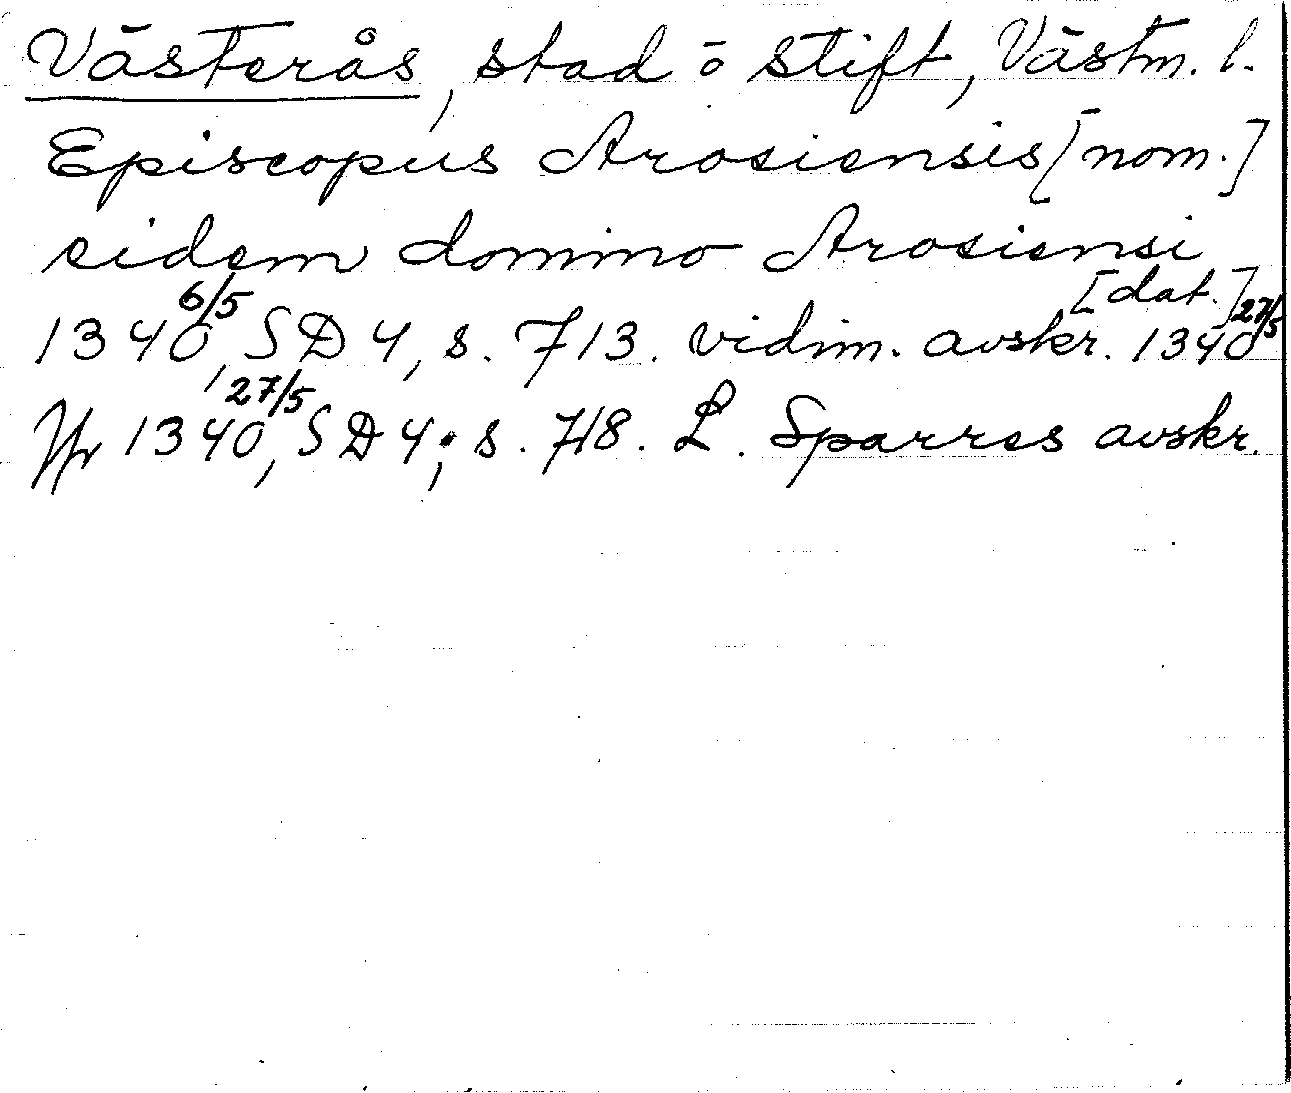 Västerås, stad o stift, Västm. l.
Episcopus Arosiensis [nom.]
eidem domino Arosiensi [dat.]
1340 6/5, SD 4, s. 713. vidim. avskr. 1340 27/5
Jfr 1340 27/5, SD 4, s. 718. L. Sparres avskr.